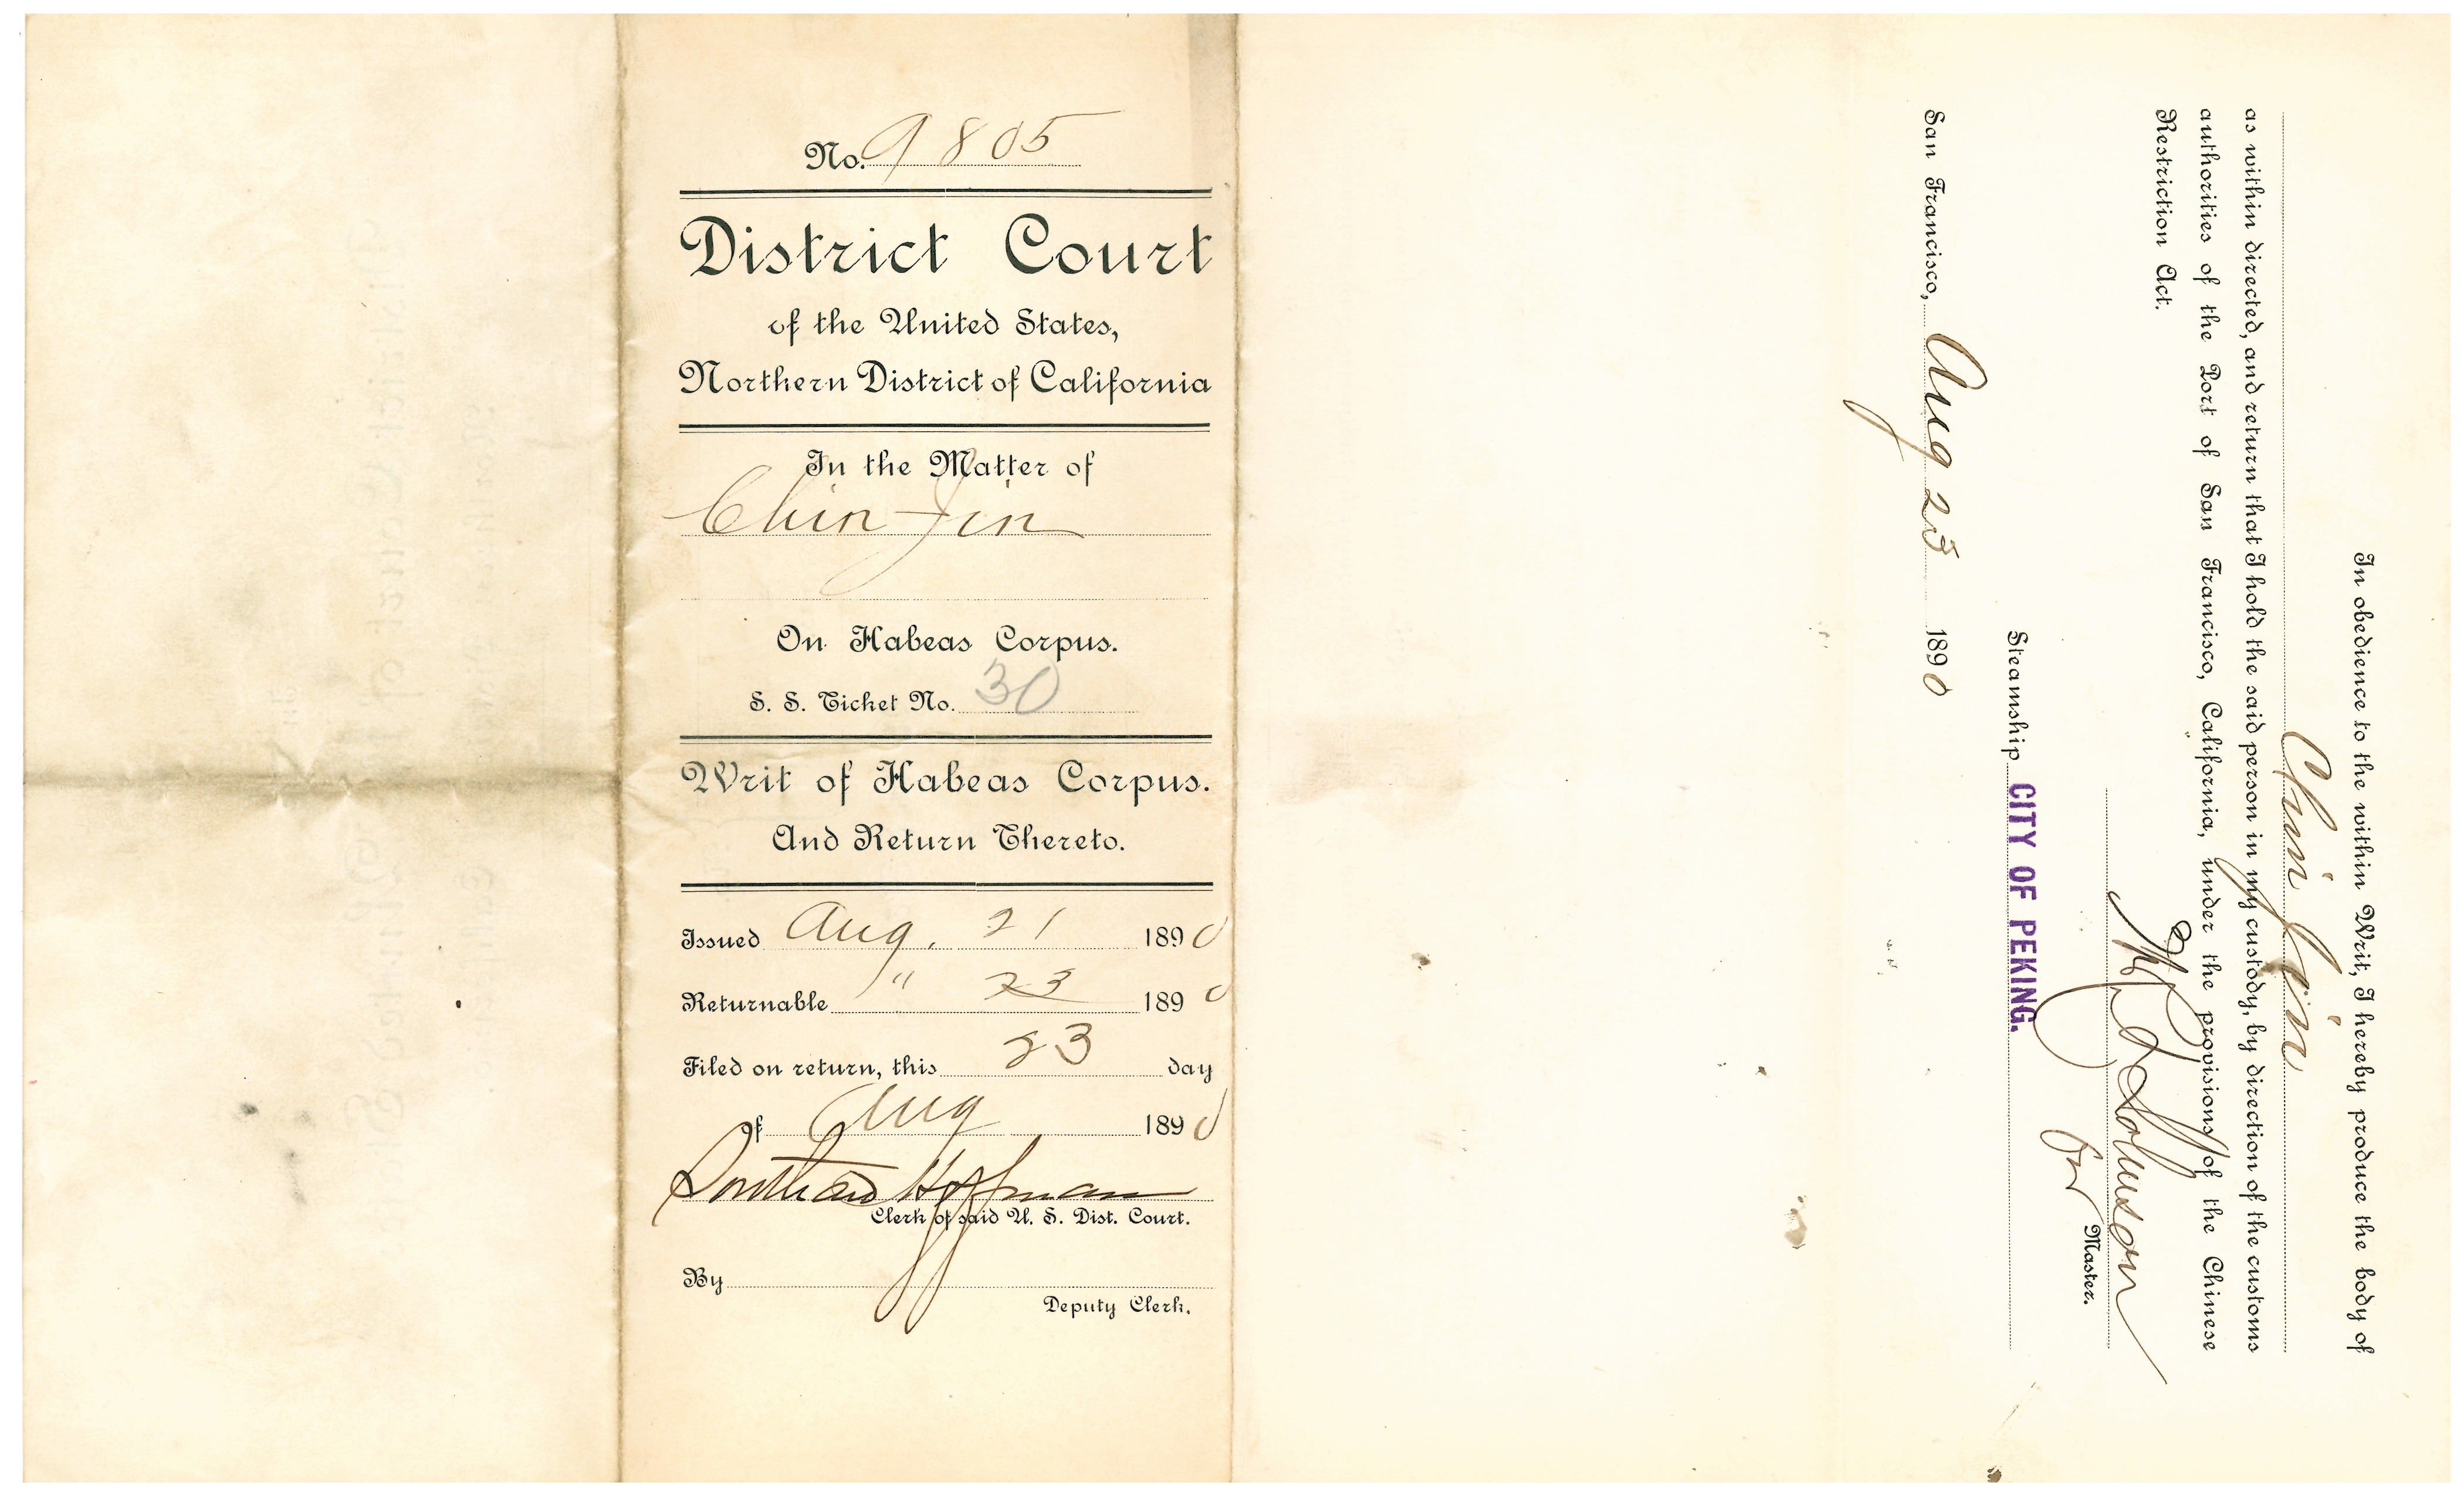 No. 9805
District Court
of the United States,
Northern District of California
In the Matter of
Chin Jin
On Habeas Corpus.
S. S. Ticket No. 30
Writ of Habeas Corpus.
And Return Thereto.
Issued Aug. 21 1890
Returnable " 23 1890
Filed on return, this 23 day
of Aug 1890
Southard Hoffman
Clerk of said U. S. Dist. Court.
By
Deputy Clerk.
In obedience to the within Writ, I hereby produce the body of
Chin Jin
as within directed, and return that I hold the said person in my custody, by direction of the customs
authorities of the Port of San Francisco, California, under the provisions of the Chinese
Restriction Act.
Johnson
for Master.
Steamship CITY OF PEKING.
San Francisco, Aug 23 1890